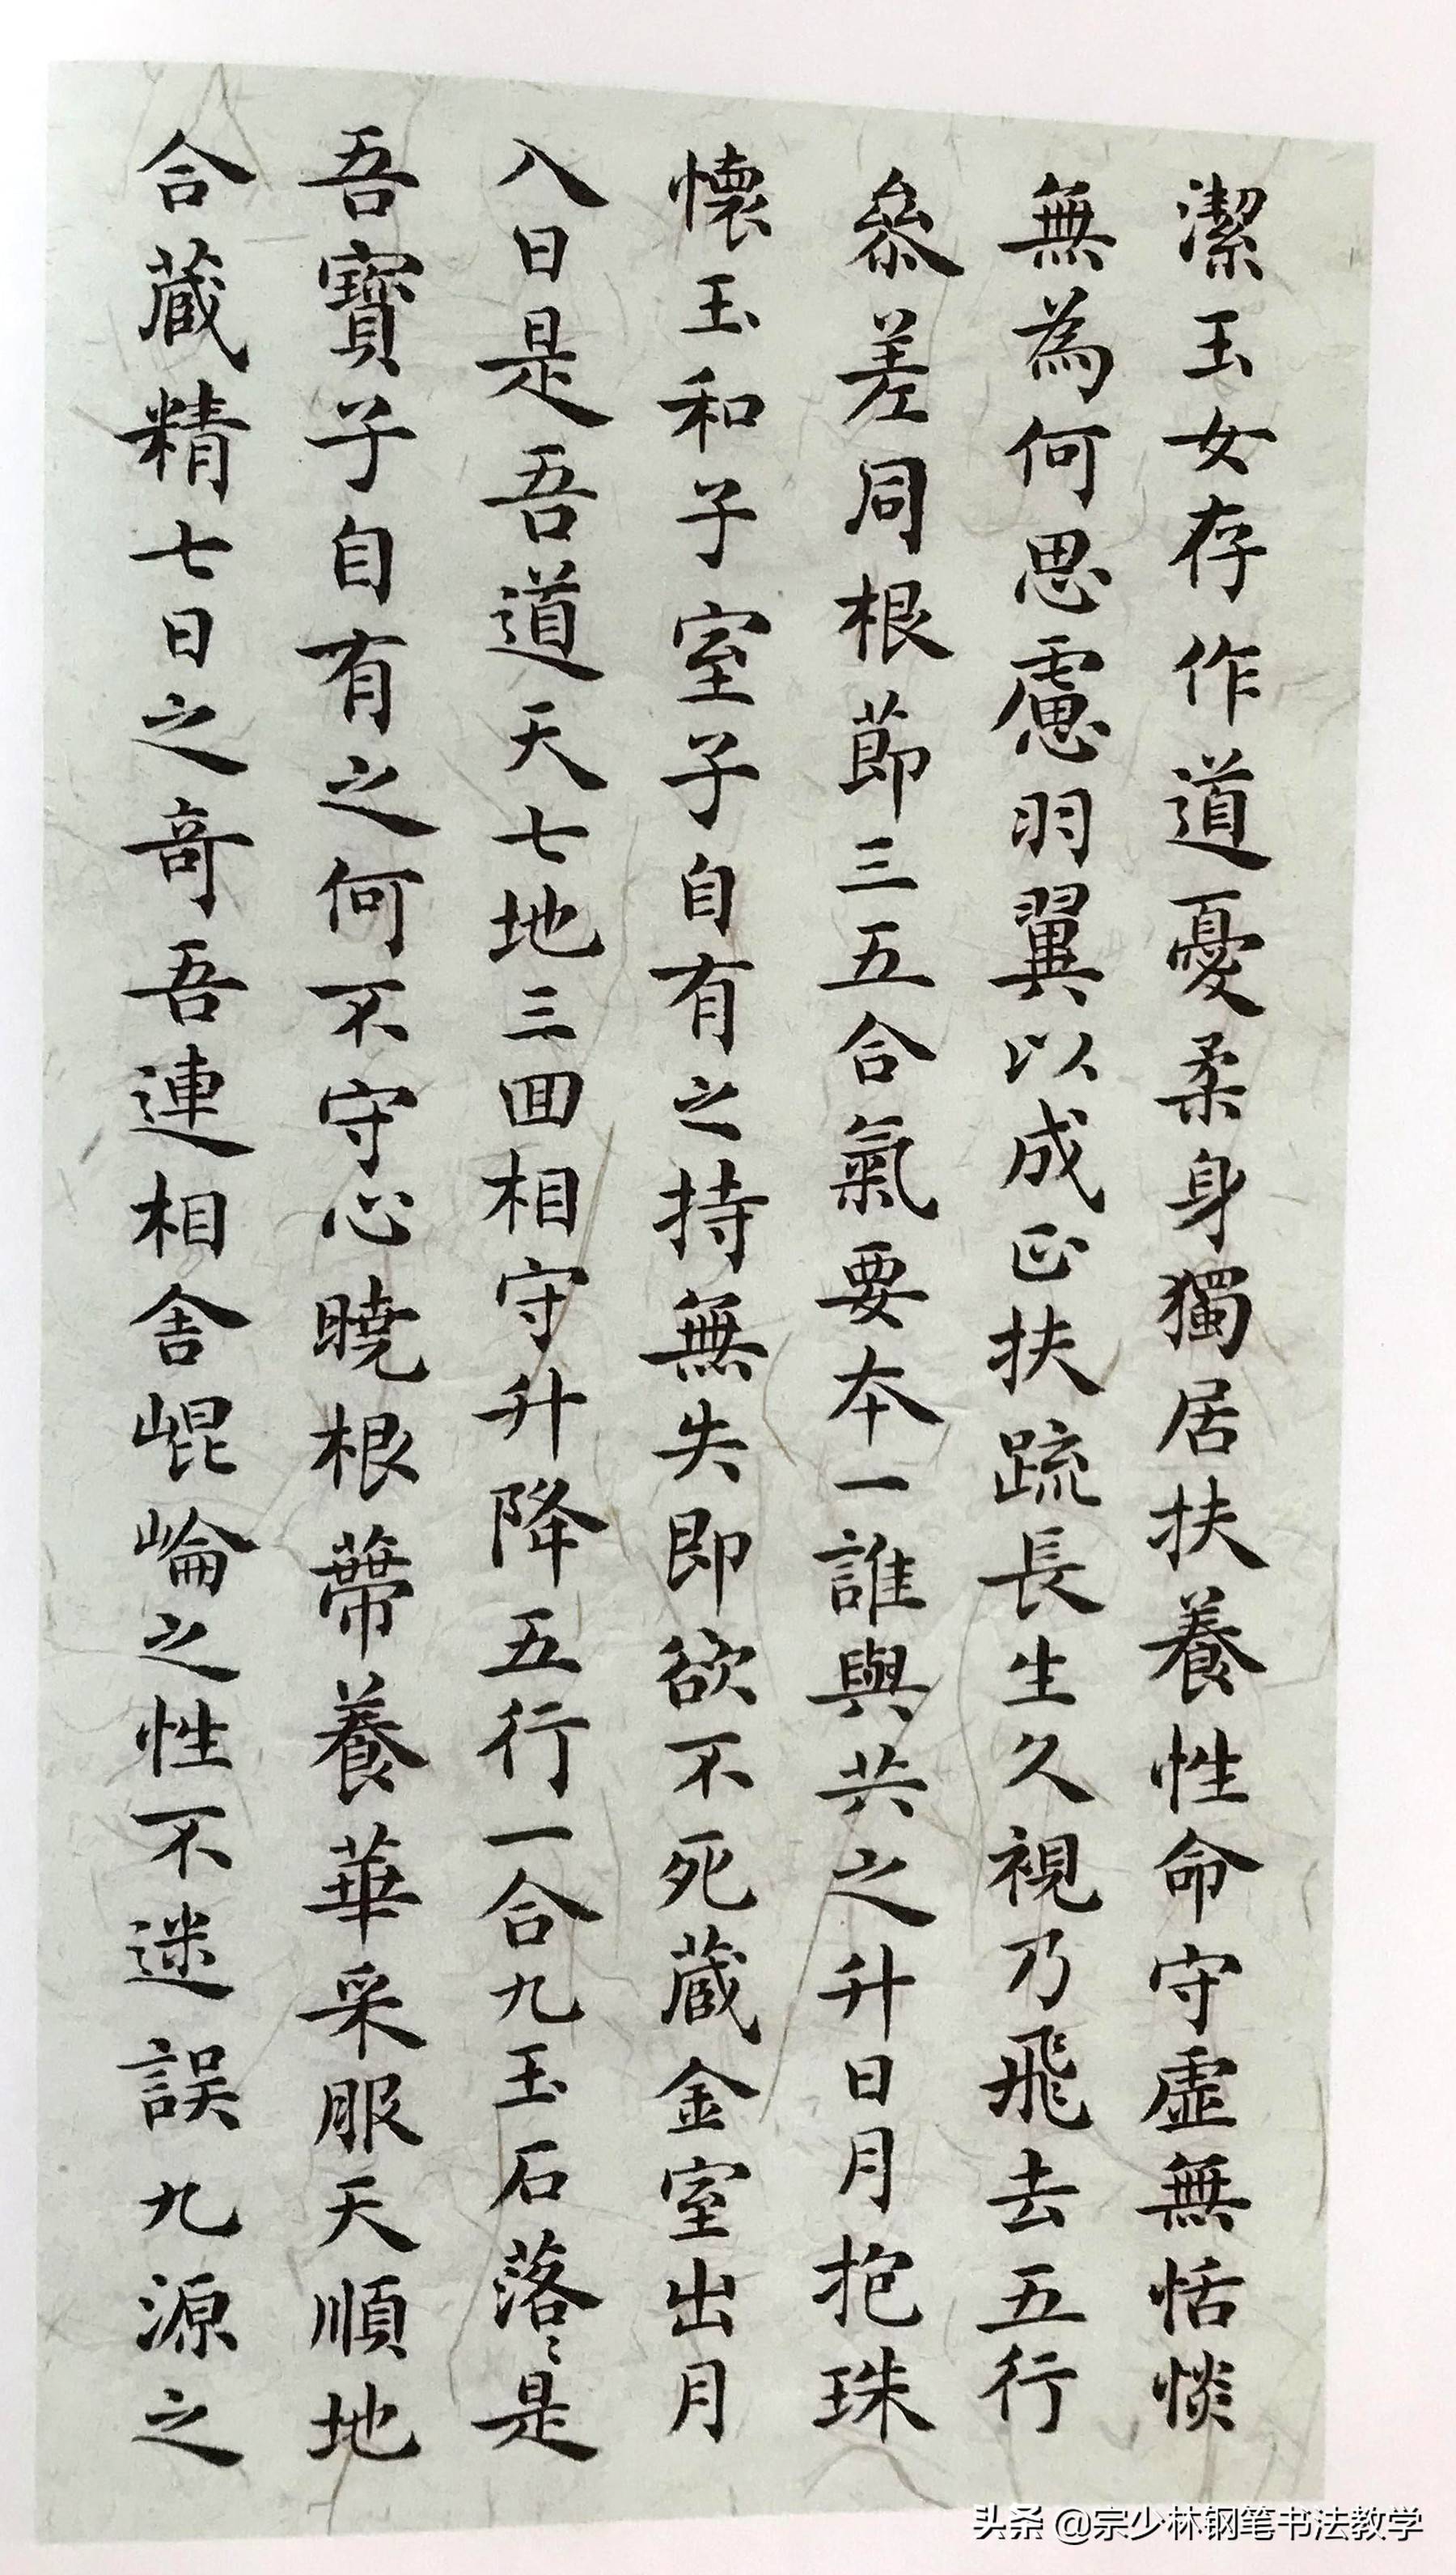 潔玉女存作道憂柔身獨居扶養性命守虛無恬惔
無為何思慮羽翼以成正扶踈長生久視乃飛去五行
叅差同根莭三五合氣要本一誰與共之升日月抱珠
懷玉和子室子自有之持無失即欲不死蔵金室出月
八日是吾道天七地三回相守升降五行一合九玉石落〻是
吾寶子自有之何不守心曉根蔕養華采服天順地
合蔵精七日之竒吾連相舍崐崘之性不迷誤九源之
头条 @宗少林钢笔书法教学